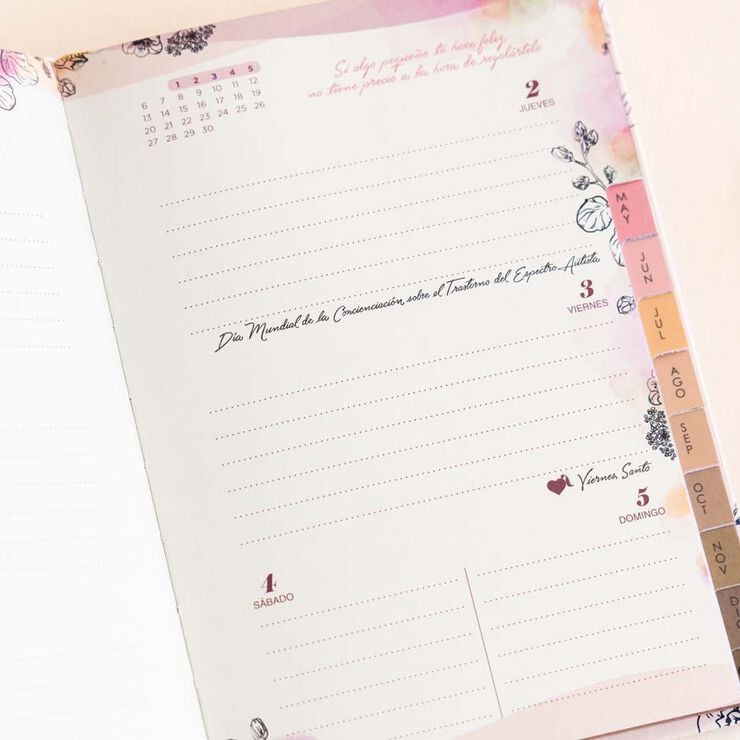 Si algo pequeño te hace feliz,
no tiene precio a la hora de regalártelo
1 2 3 4 5
6 7 8 9 10 11 12
13 14 15 16 17 18 19
20 21 22 23 24 25 26
27 28 29 30
2
JUEVES
Día Mundial de la Concienciación sobre el Trastorno del Espectro Autista
3
VIERNES
Viernes Santo
4
SÁBADO
5
DOMINGO
MAY
JUN
JUL
AGO
SEP
OCT
NOV
DIC